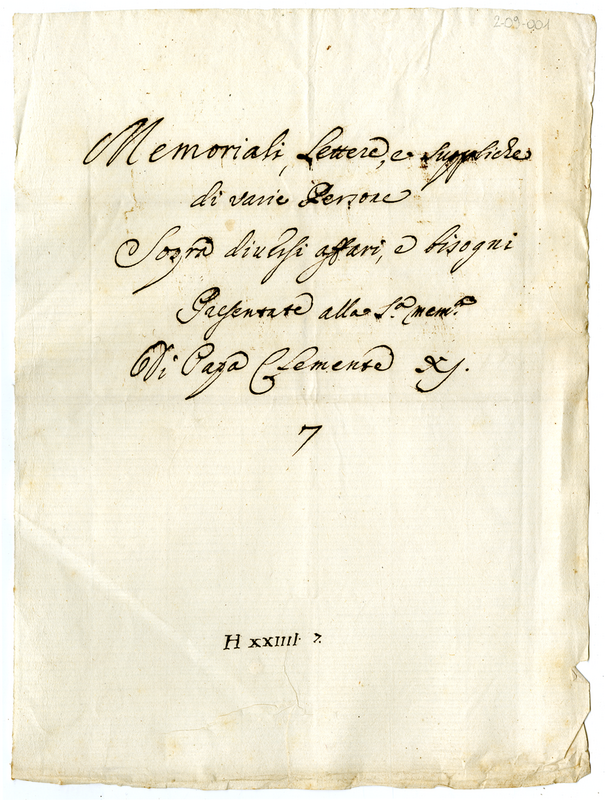 2-09-001
Memoriali, Lettere, e Suppliche
di varie Persone
Sopra diversi affari, e bisogni
Presentate alla S.ª mem.ª
Di Papa Clemente XJ.
7
H XXIIII. 7.